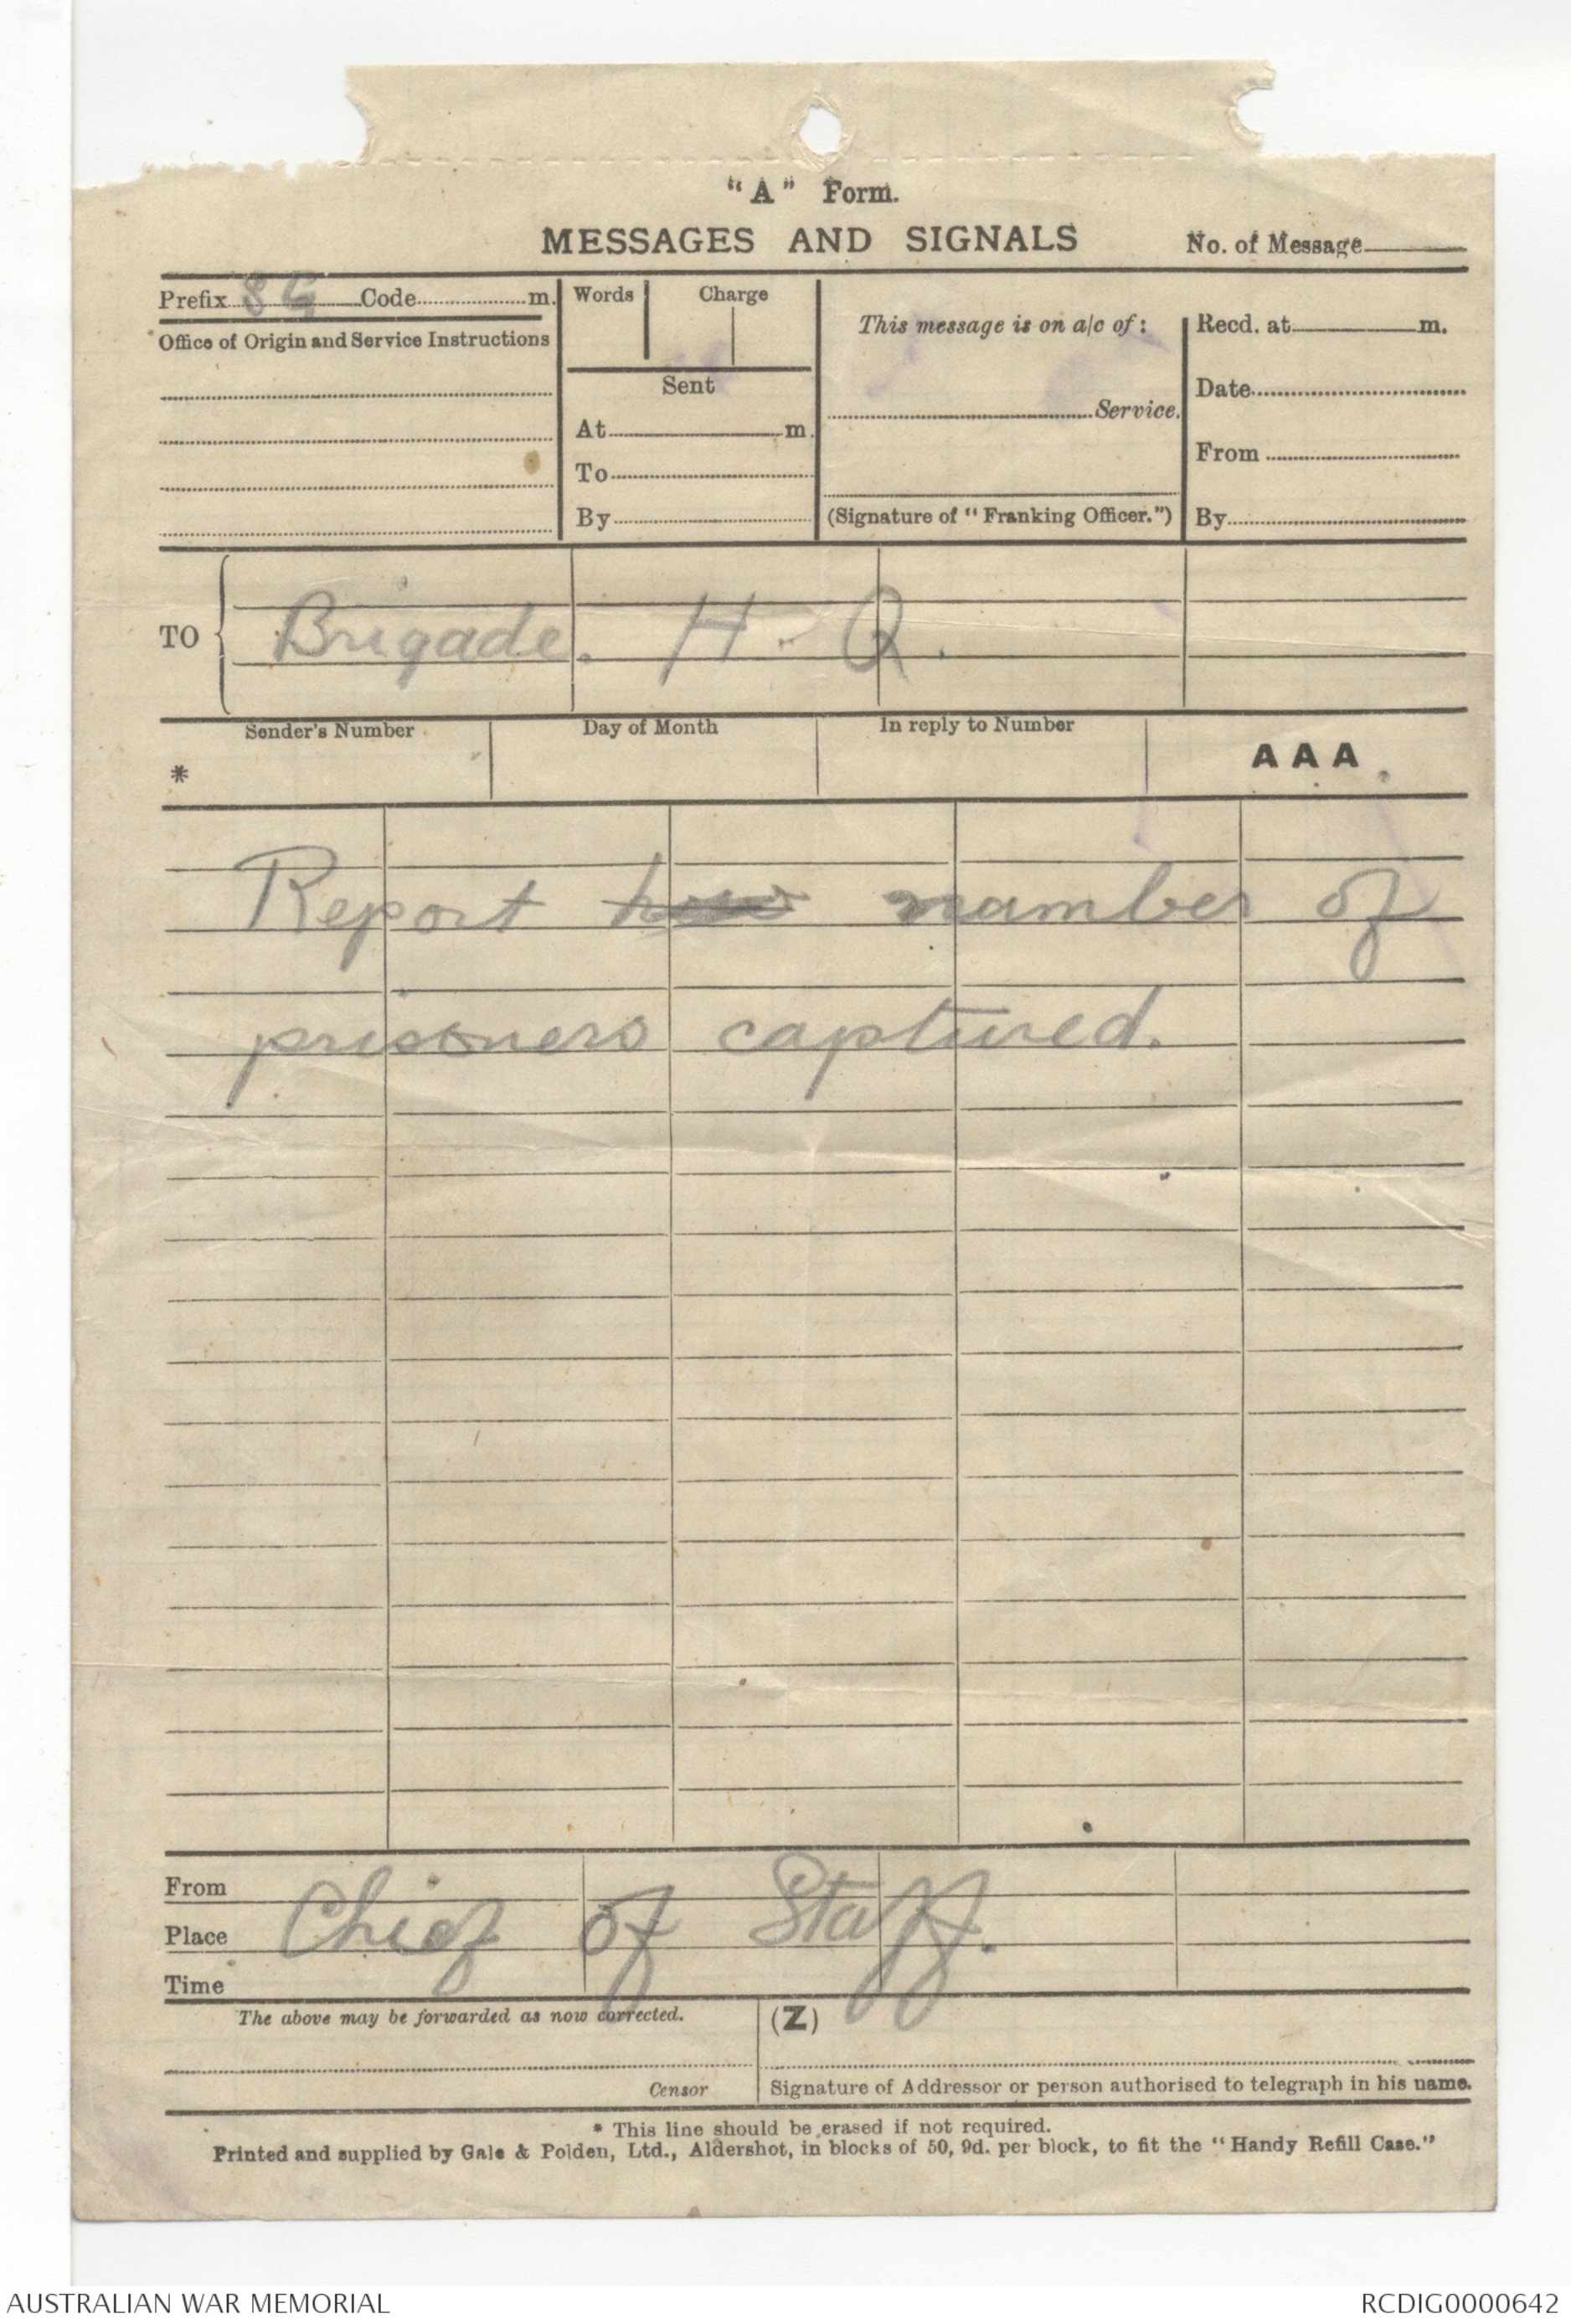 "A" Form.
MESSAGES AND SIGNALS
No. of Message
Prefix SG Code m.
Words Charge
This message is on a/c of :
Recd. at m.
Office of Origin and Service Instructions
Sent
Date
Service.
At m.
From
To
By
(Signature of "Franking Officer.")
By
TO Brigade. H. Q.
Sender's Number Day of Month In reply to Number
* AAA
Report number of
prisoners captured.
From
Place Chief of Staff.
Time
The above may be forwarded as now corrected. (Z)
Censor Signature of Addressor or person authorised to telegraph in his name.
* This line should be erased if not required.
Printed and supplied by Gale & Polden, Ltd., Aldershot, in blocks of 50, 9d. per block, to fit the "Handy Refill Case."
AUSTRALIAN WAR MEMORIAL RCDIG0000642